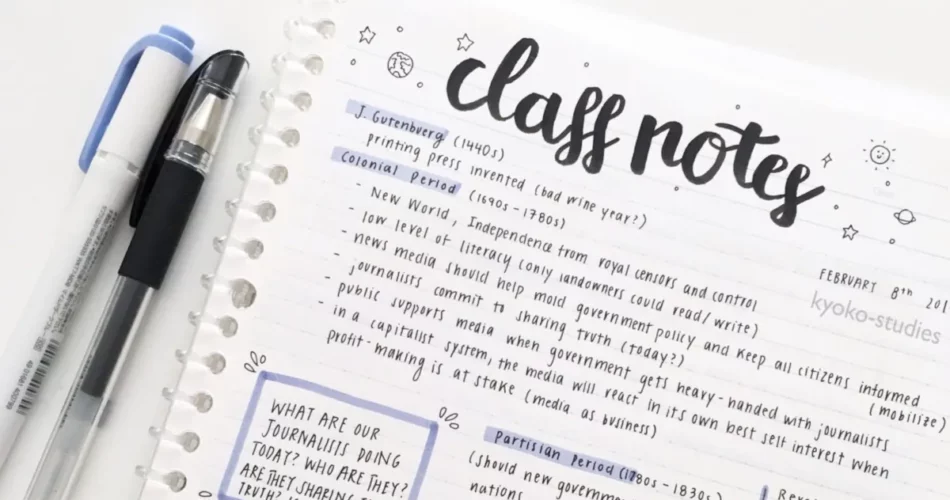 class notes
J. Gutenberg (1440s)
printing press invented (bad wine year?)
Colonial Period (1690s - 1780s)
- New World, Independence from royal censors and control
- low level of literacy (only landowners could read/write)
- news media should help mold government policy and keep all citizens informed (mobilize)
- journalists commit to sharing truth (today?)
- public supports media when government gets heavy-handed with journalists
- in a capitalist system, the media will react in its own best self interest when
profit-making is at stake (media as business)
FEBRUARY 8th
kyoko-studies
WHAT ARE OUR
JOURNALISTS DOING
TODAY? WHO ARE THEY?
ARE THEY SHARING
TRUTH?
Partisian Period (1780s - 1830s)
(should new
nations